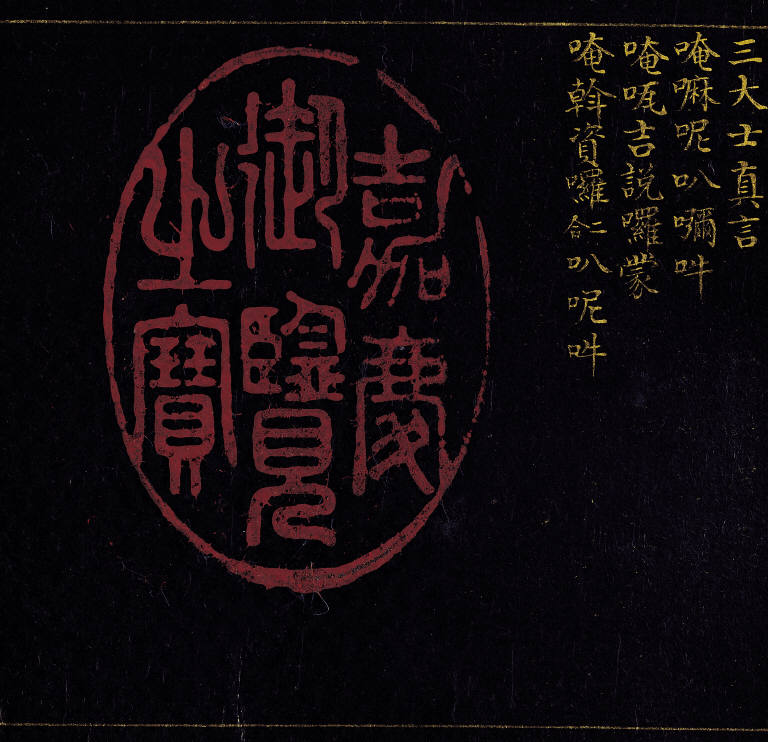 三大士真言
唵嘛呢叭嚩吽
唵㕶吉説囉蒙
唵斡資囉㑒叭呢吽
嘉慶
御覽
之寶